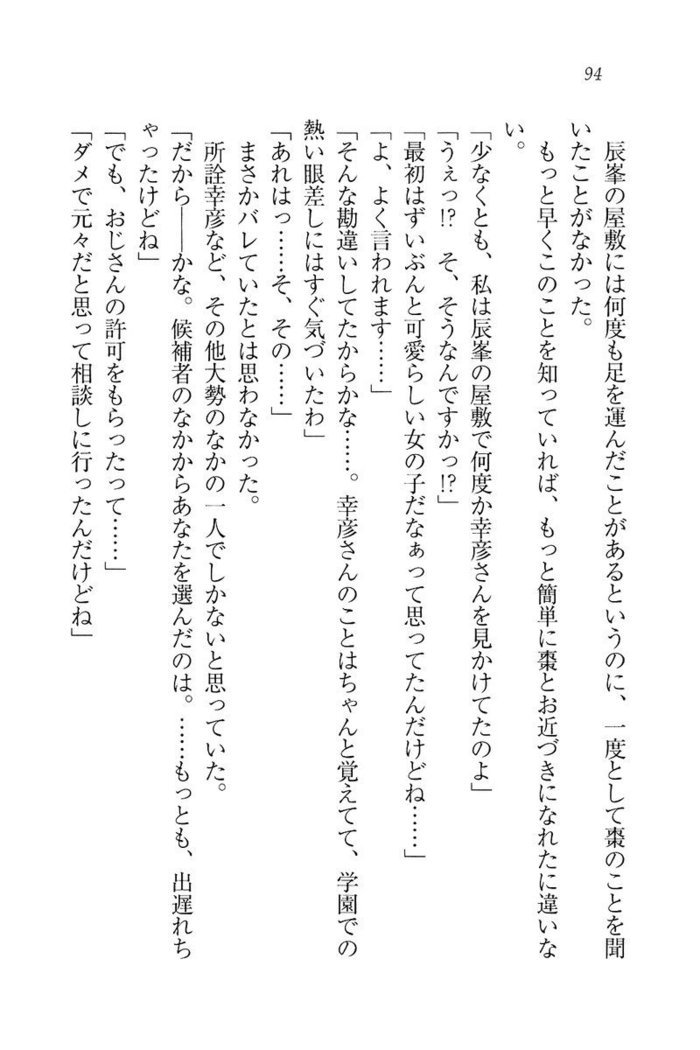 94
辰峯の屋敷には何度も足を運んだことがあるというのに、一度として棗のことを聞
いたことがなかった。
もっと早くこのことを知っていれば、もっと簡単に棗とお近づきになれたに違いな
い。
「少なくとも、私は辰峯の屋敷で何度か幸彦さんを見かけてたのよ」
「うぇっ!?　そ、そうなんですかっ!?」
「最初はずいぶんと可愛らしい女の子だなぁって思ってたんだけどね……」
「よ、よく言われます……」
「そんな勘違いしてたからかな……。幸彦さんのことはちゃんと覚えてて、学園での
熱い眼差しにはすぐ気づいたわ」
「あれはっ……そ、その……」
まさかバレていたとは思わなかった。
所詮幸彦など、その他大勢のなかの一人でしかないと思っていた。
「だから――かな。候補者のなかからあなたを選んだのは。……もっとも、出遅れち
ゃったけどね」
「でも、おじさんの許可をもらったって……」
「ダメで元々だと思って相談しに行ったんだけどね」